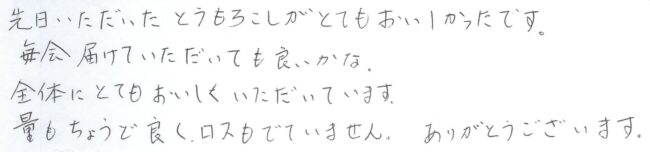 先日いただいた とうもろこしがとてもおいしかったです。
毎会 届けていただいても良いかな。
全体に とてもおいしく いただいています。
量もちょうど良く、ロスもでていません。 ありがとうございます。